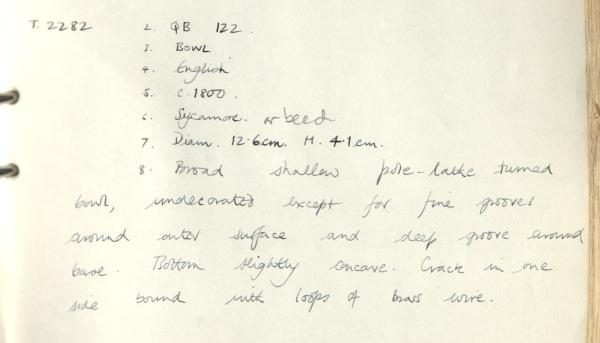 T. 2282 2. QB 122.
3. Bowl
4. English
5. c. 1800.
6. Sycamore. or beech
7. Diam. 12.6cm. H. 4.1cm.
8. Broad shallow pole-lathe turned
bowl, undecorated except for fine grooves
around outer surface and deep groove around
base. Bottom slightly concave. Crack in one
side bound with loops of brass wire.